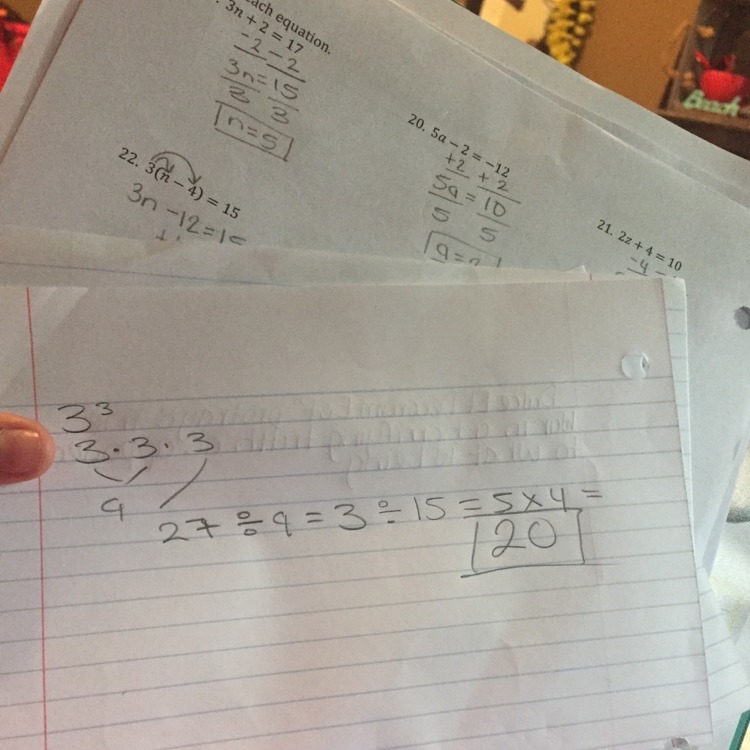 each equation.
3n + 2 = 17
-2 -2
3n = 15
n = 5
20. 5a − 2 = −12
+2 +2
5a = 10
5 5
22. 3(n − 4) = 15
3n - 12 = 15
21. 2z + 4 = 10
-4
3³
3 · 3 · 3
9
27 ÷ 9 = 3 ÷ 15 = 5 x 4 =
20
Beach